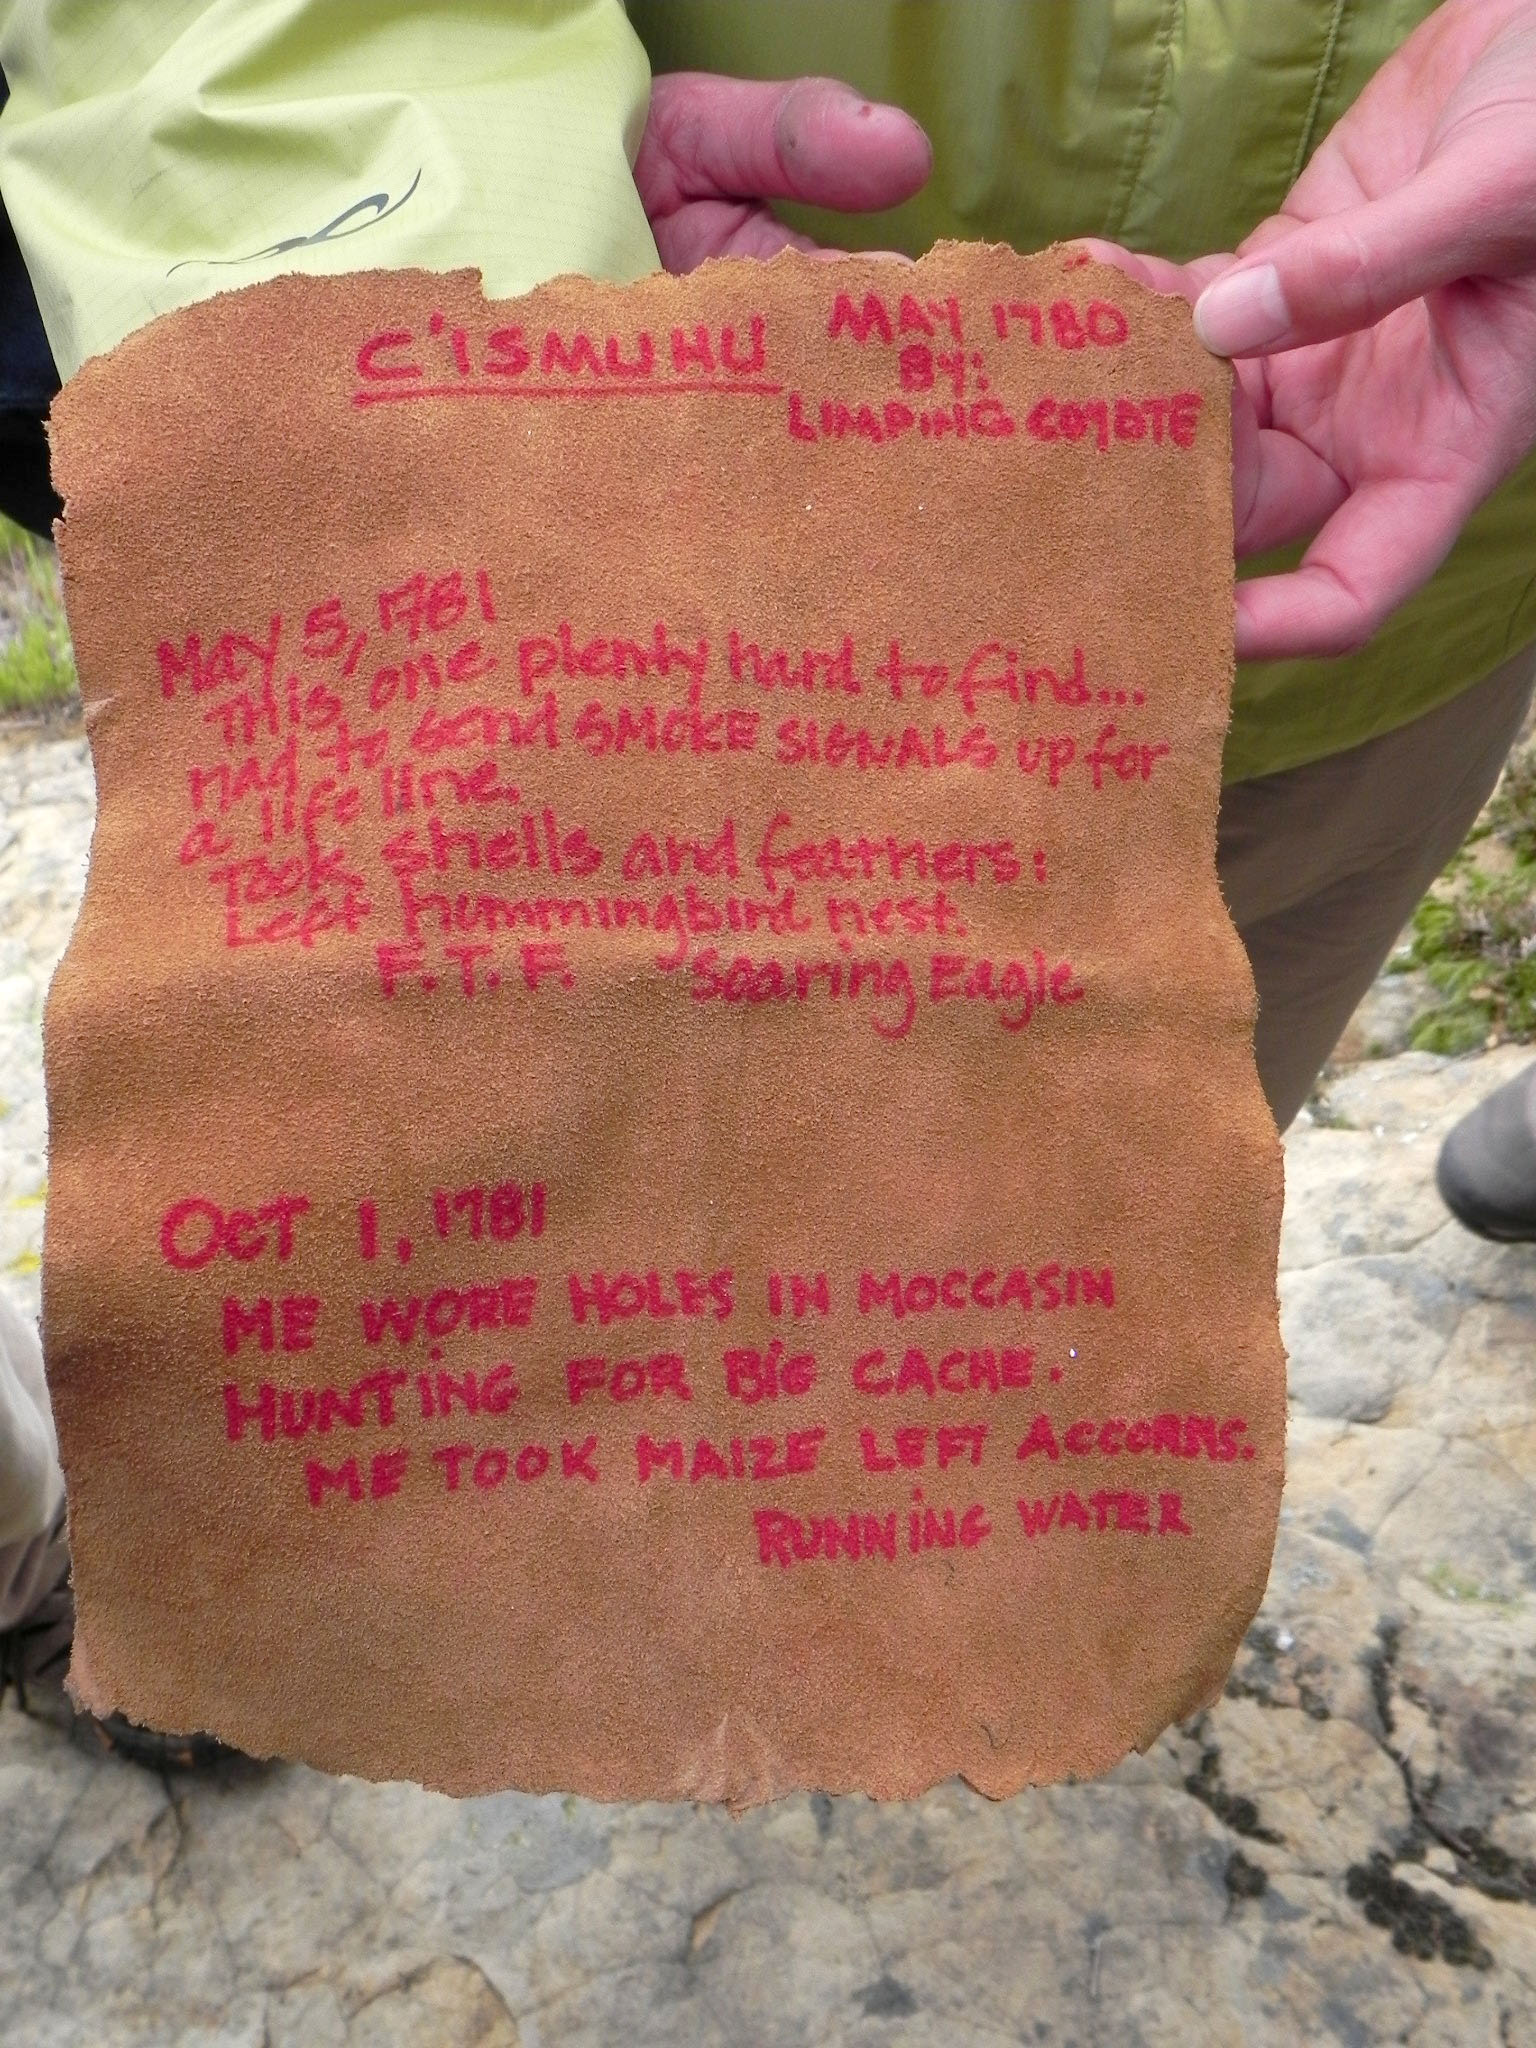 C'ISMUHU
MAY 1780
BY:
LIMPING COYOTE
May 5, 1781
This one plenty hard to find...
Had to send SMOKE SIGNALS up for
a life line.
Took shells and feathers:
Left hummingbird nest.
F.T.F. Soaring Eagle
OCT 1, 1781
ME WORE HOLES IN MOCCASIN
HUNTING FOR BIG CACHE.
ME TOOK MAIZE LEFT ACCORNS.
RUNNING WATER